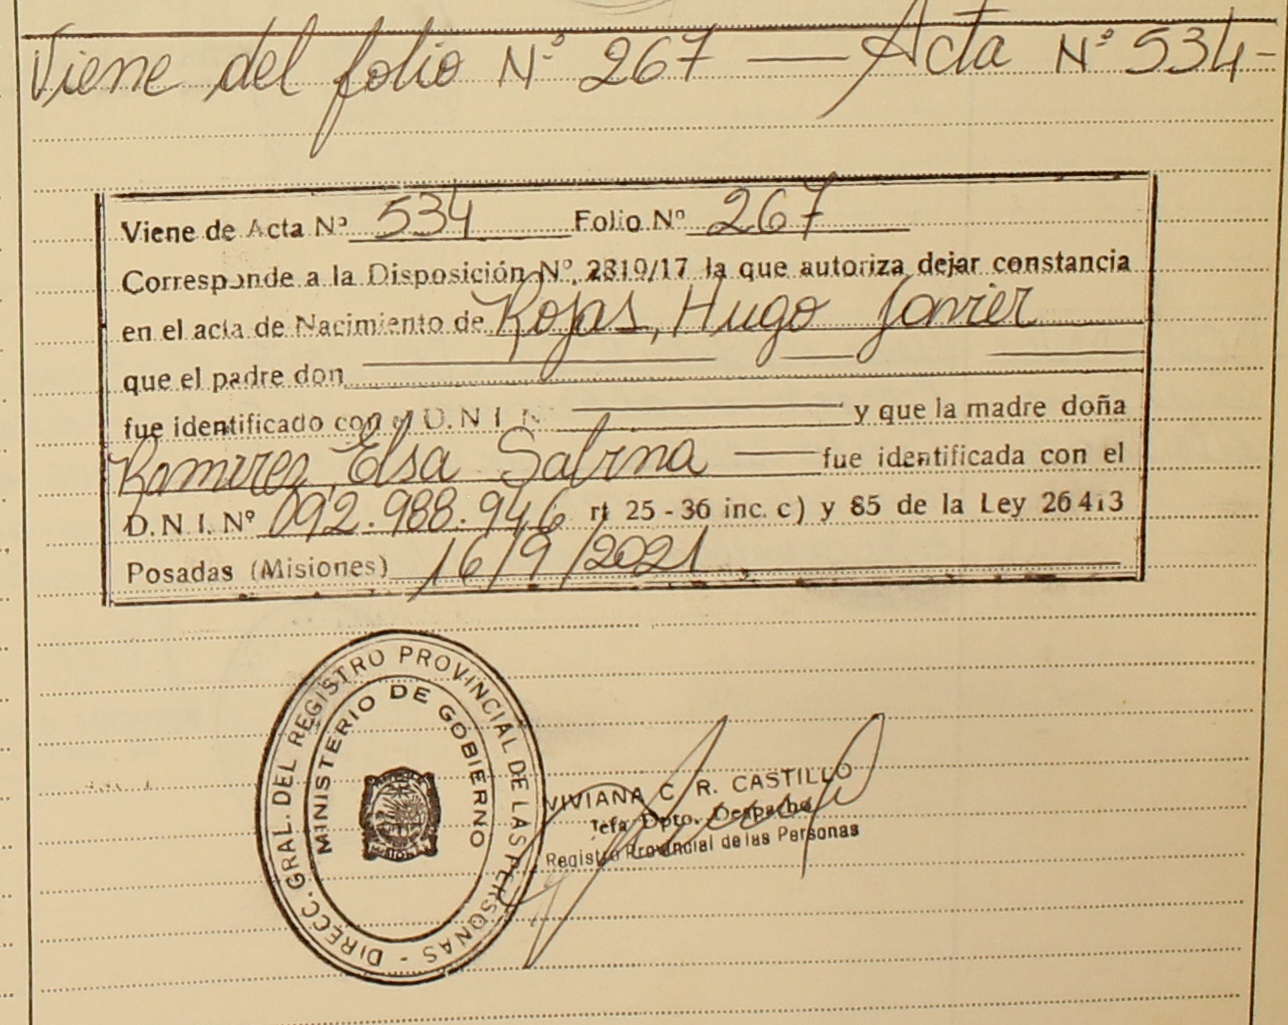 Viene del folio Nº 267 — Acta Nº 534-
Viene de Acta Nº 534 Folio Nº 267
Corresponde a la Disposición Nº 2819/17 la que autoriza dejar constancia
en el acta de Nacimiento de Rojas, Hugo Javier
que el padre don
fue identificado con el D.N.I. N° y que la madre doña
Ramirez, Elsa Sabina — fue identificada con el
D.N.I. Nº 092.988.946 rt 25 - 36 inc. c) y 85 de la Ley 26413
Posadas (Misiones) 16/9/2021
DIRECC. GRAL. DEL REGISTRO PROVINCIAL DE LAS PERSONAS -
MINISTERIO DE GOBIERNO
MISIONES
VIVIANA C. R. CASTILLO
Jefa Dpto. Despacho
Registro Provincial de las Personas